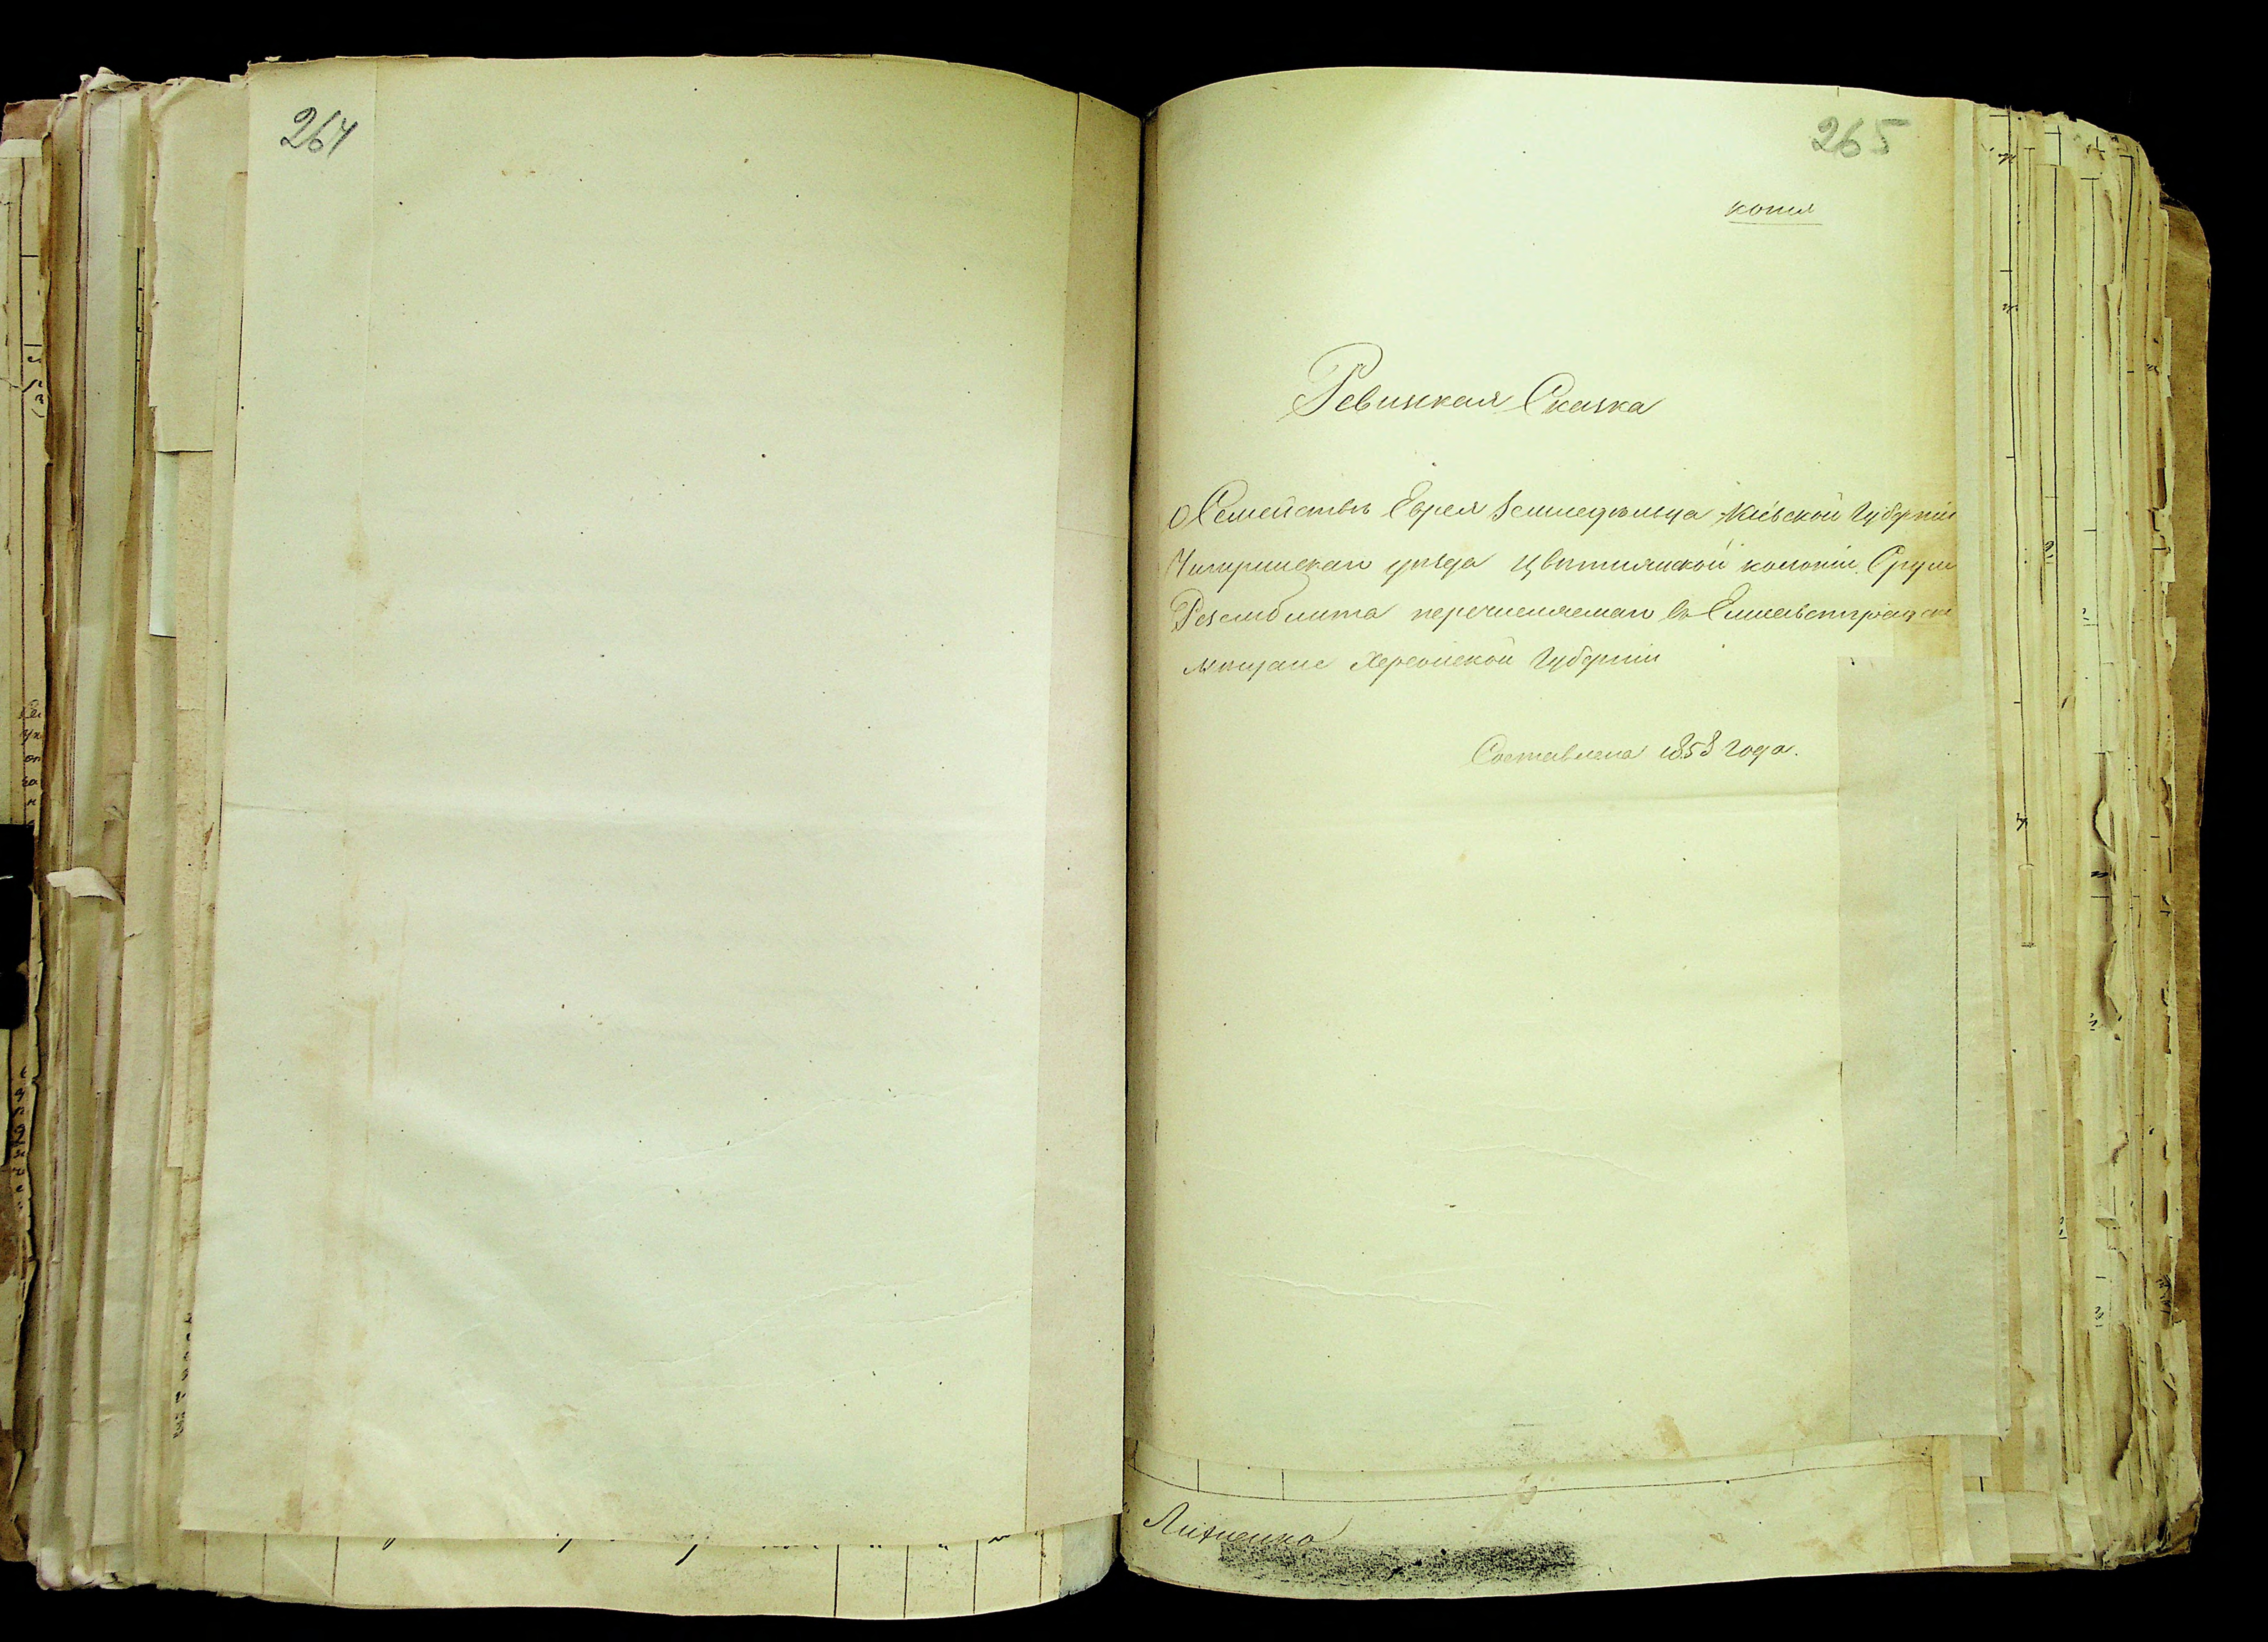 264
265
копія
Ревизкая Сказка
О Семействѣ Еврея Земледѣльца Кіевской Губерніи
Чигиринскаго уѣзда Цвѣтнянской колоніи Сруля
Реземблита перечисляемаго въ Елисаветградскіе
мѣщане Херсонской Губерніи
Составлена 1858 года.